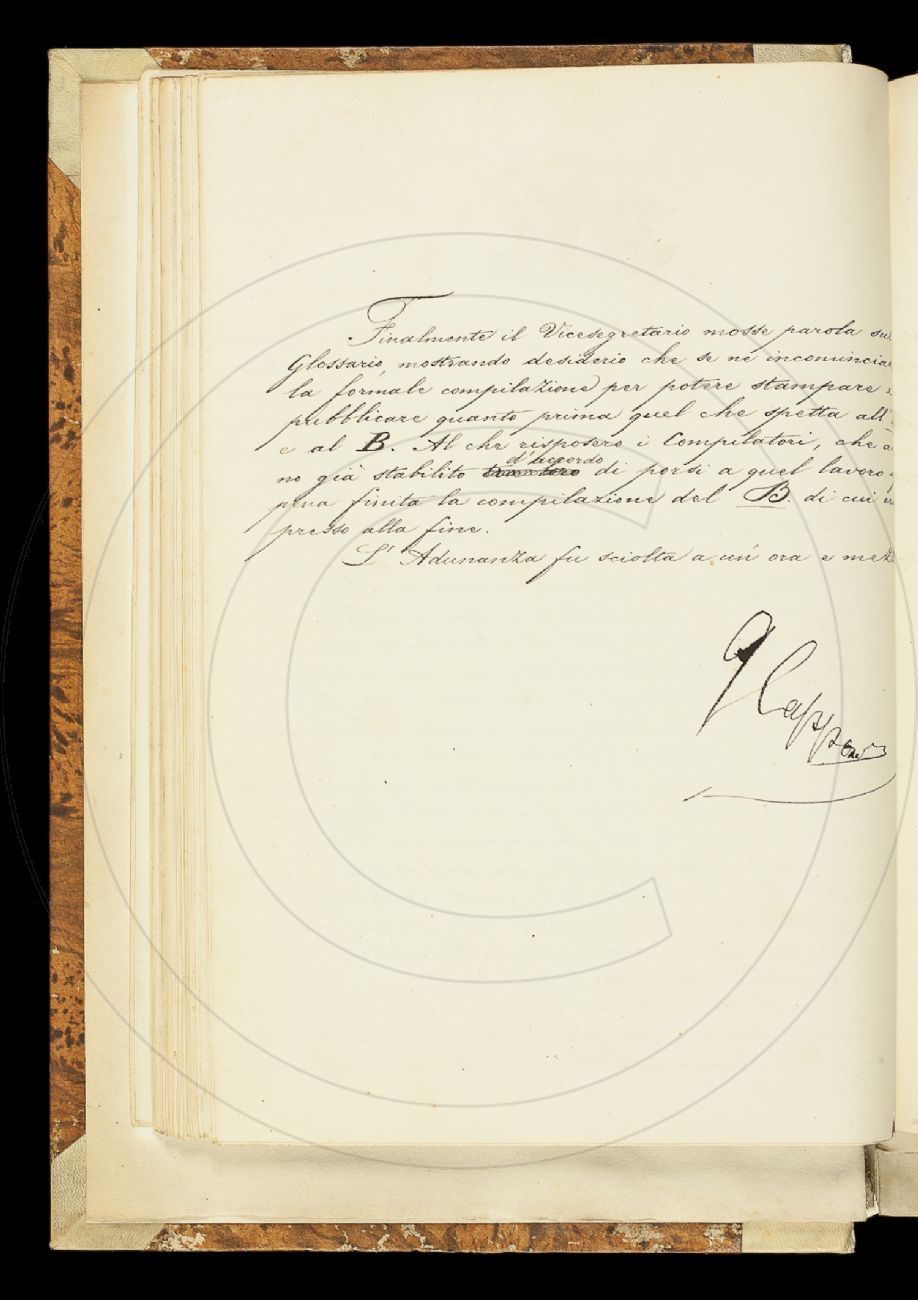 Finalmente il Vicesegretario mosse parola sul
Glossario, mostrando desiderio che se ne incomincia
la formale compilazione per potere stampare
pubblicare quanto prima quel che spetta all'
e al B. Al che risposero i Compilatori, che a
d'accordo
no già stabilito di porsi a quel lavoro
pena finita la compilazione del B. di cui er
presso alla fine.
L'Adunanza fu sciolta a un' ora e mez
G Capponi